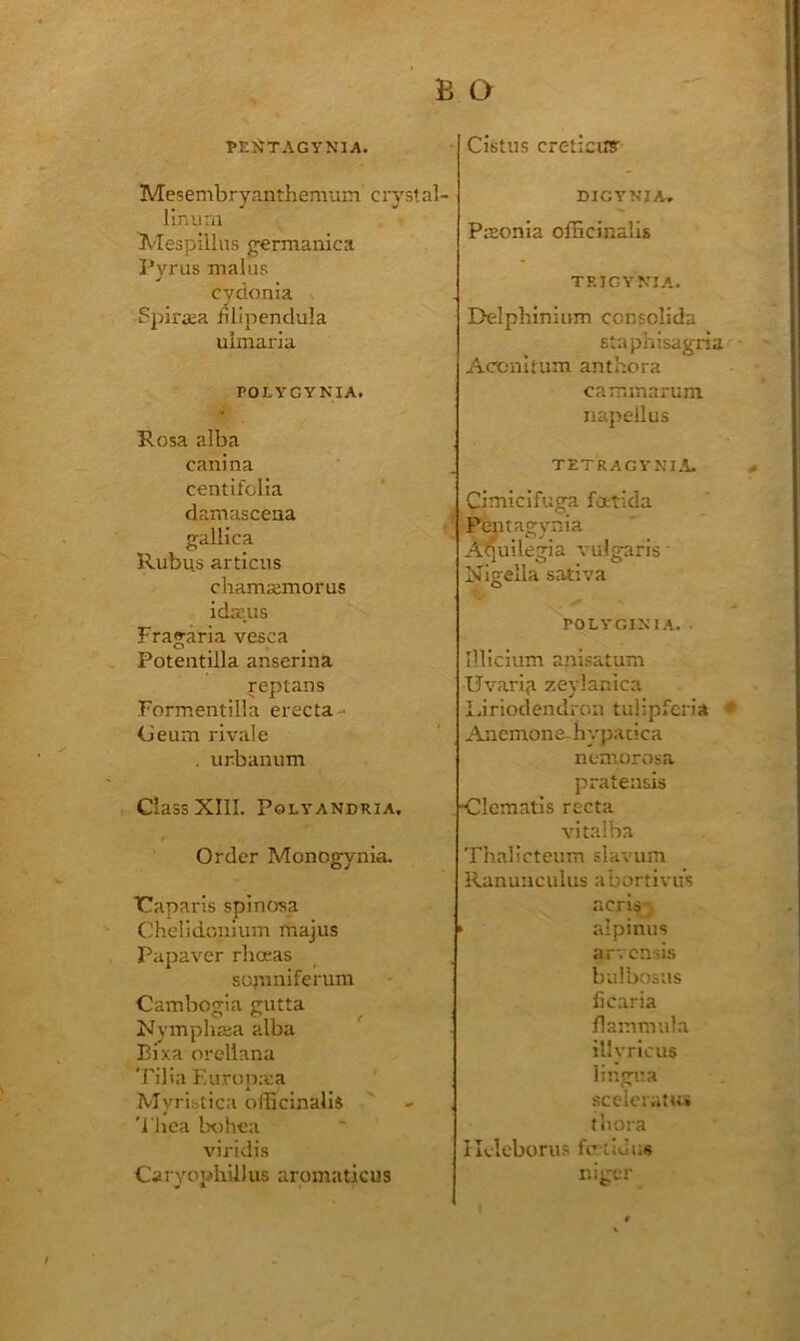 B O
PENTAGYNIA.
Mesembryanthemum crystal-
linum
Mespillus germanica
Pyrus malus
cydonia
Spiræa filipendula
ulmaria
POLYGYNIA.
Rosa alba
canina
centifolia
damascena
gallica
Rubus articus
chamæmorus
idæus
Fragaria vesca
Potentilla anserina
reptans
Formentilla erecta
Geum rivale
urbanum
Class XIII. POLYANDRIA.
Order Monogynia.
Caparis spinosa
Chelidonium majus
Papaver rhœas
somniferum
Cambogia gutta
Nymphæa alba
Bixa orellana
Tilia Europæa
Myristica officinalis
Thea bohea
viridis
Caryophillus aromaticus
Cistus creticus
DIGYNIA.
Pæonia officinalis
TRIGYNIA.
Delphinium consolida
staphisagria
Aconitum anthora
cammarum
napellus
TETRAGYNIA.
Cimicifuga fœtida
Pentagynia
Aquilegia vulgaris
Nigella sativa
POLYGINIA.
Illicium anisatum
Uvaria zeylanica
Liriodendron tulipferia
Anemone hypatica
nemorosa
pratensis
Clematis recta
vitalba
Thalicteum slavum
Ranunculus abortivus
acris
alpinus
arvensis
bulbosus
ficaria
flammula
illyricus
lingua
sceleratus
thora
Heleborus fœtidus
niger